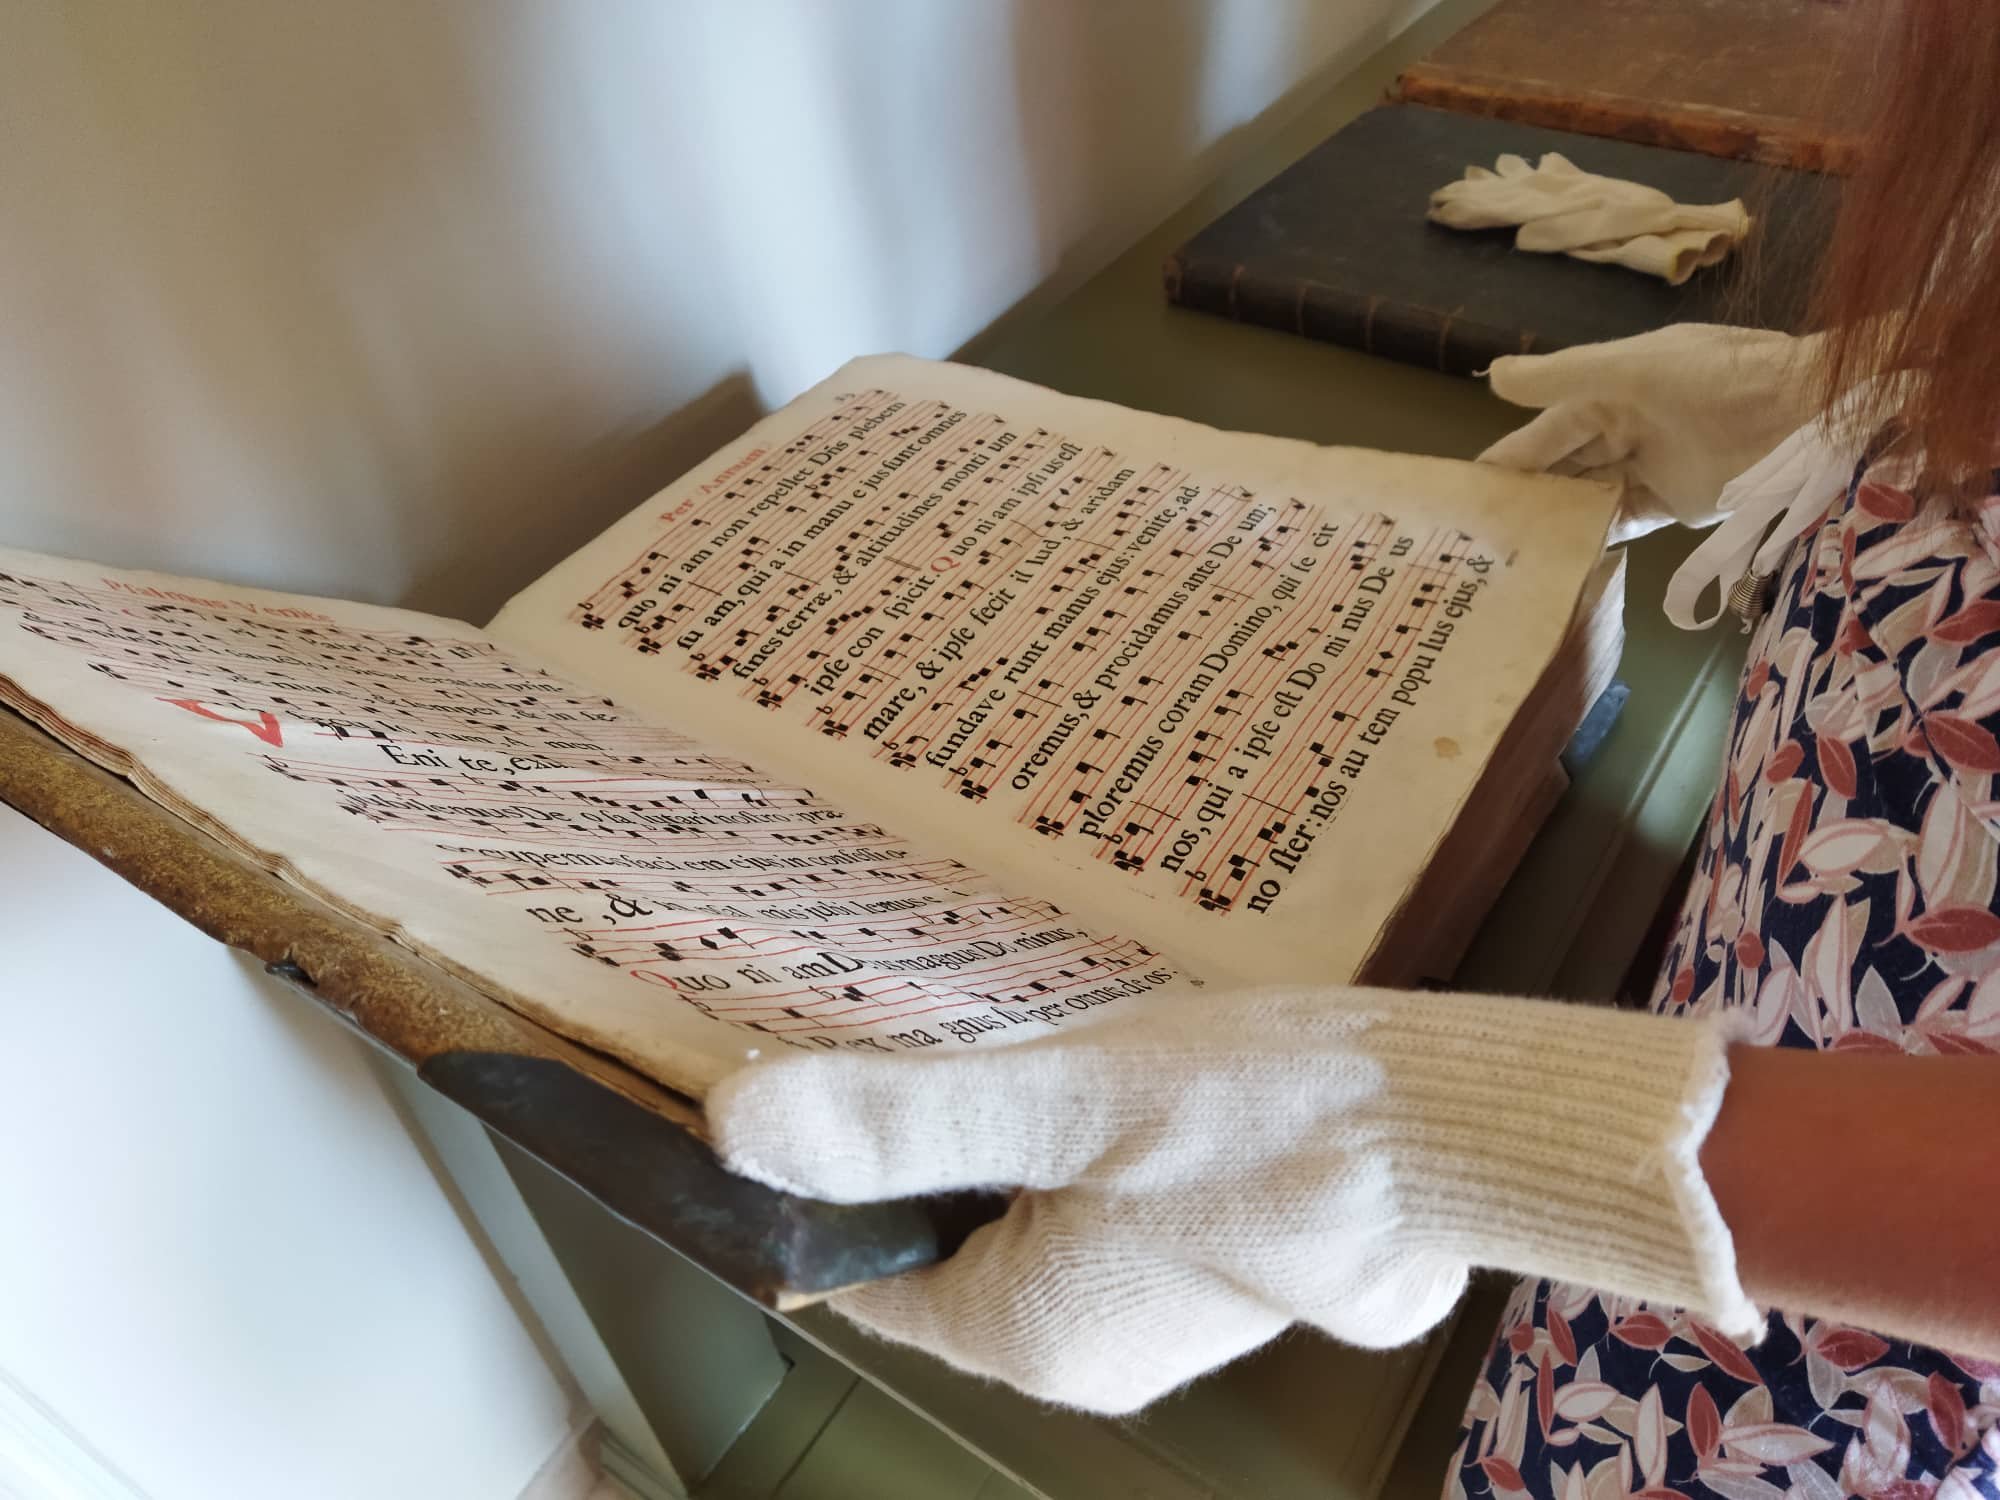 Psalmus Venite
Patri, &
& nunc, & semper, & in sæ-
rum. A men.
Eni te, exu
jubilemus De o sa lutari nostro: præ-
occupemus faci em ejus in confessi o-
ne, & in psal mis jubi lemus e i
Quo ni am Deus magnus Do minus,
& Rex ma gnus su per omnes de os:
Per Annum
quo ni am non repellet Dñs plebem
su am, qui a in manu e jus sunt omnes
fines terræ, & altitudines monti um
ipse con spicit. Q uo ni am ipsi us est
mare, & ipse fecit il lud, & aridam
fundave runt manus ejus: venite, ad-
oremus, & procidamus ante De um;
ploremus coram Domino, qui fe cit
nos, qui a ipse est Do mi nus De us
no ster: nos au tem popu lus ejus, &